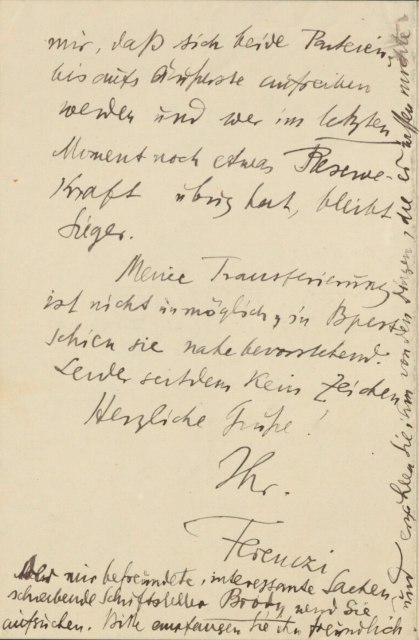 mir, daß sich beide Parteien
bis aufs Äußerste aufreiben
werden und wer im letzten
Moment noch etwas Reserve-
Kraft übrig hat, bleibt
Sieger.
Meine Transferierung
ist nicht unmöglich, in Bpest
schien sie nahe bevorstehend.
Leider seitdem kein Zeichen!
Herzliche Grüße!
Ihr.
Ferenczi
mir befreundete, interessante Sachen
schreibende Schriftsteller Brody wird Sie
aufsuchen. Bitte empfangen Sie ihn freundlich
und erzählen Sie ihm von den Dingen, die er wissen möchte